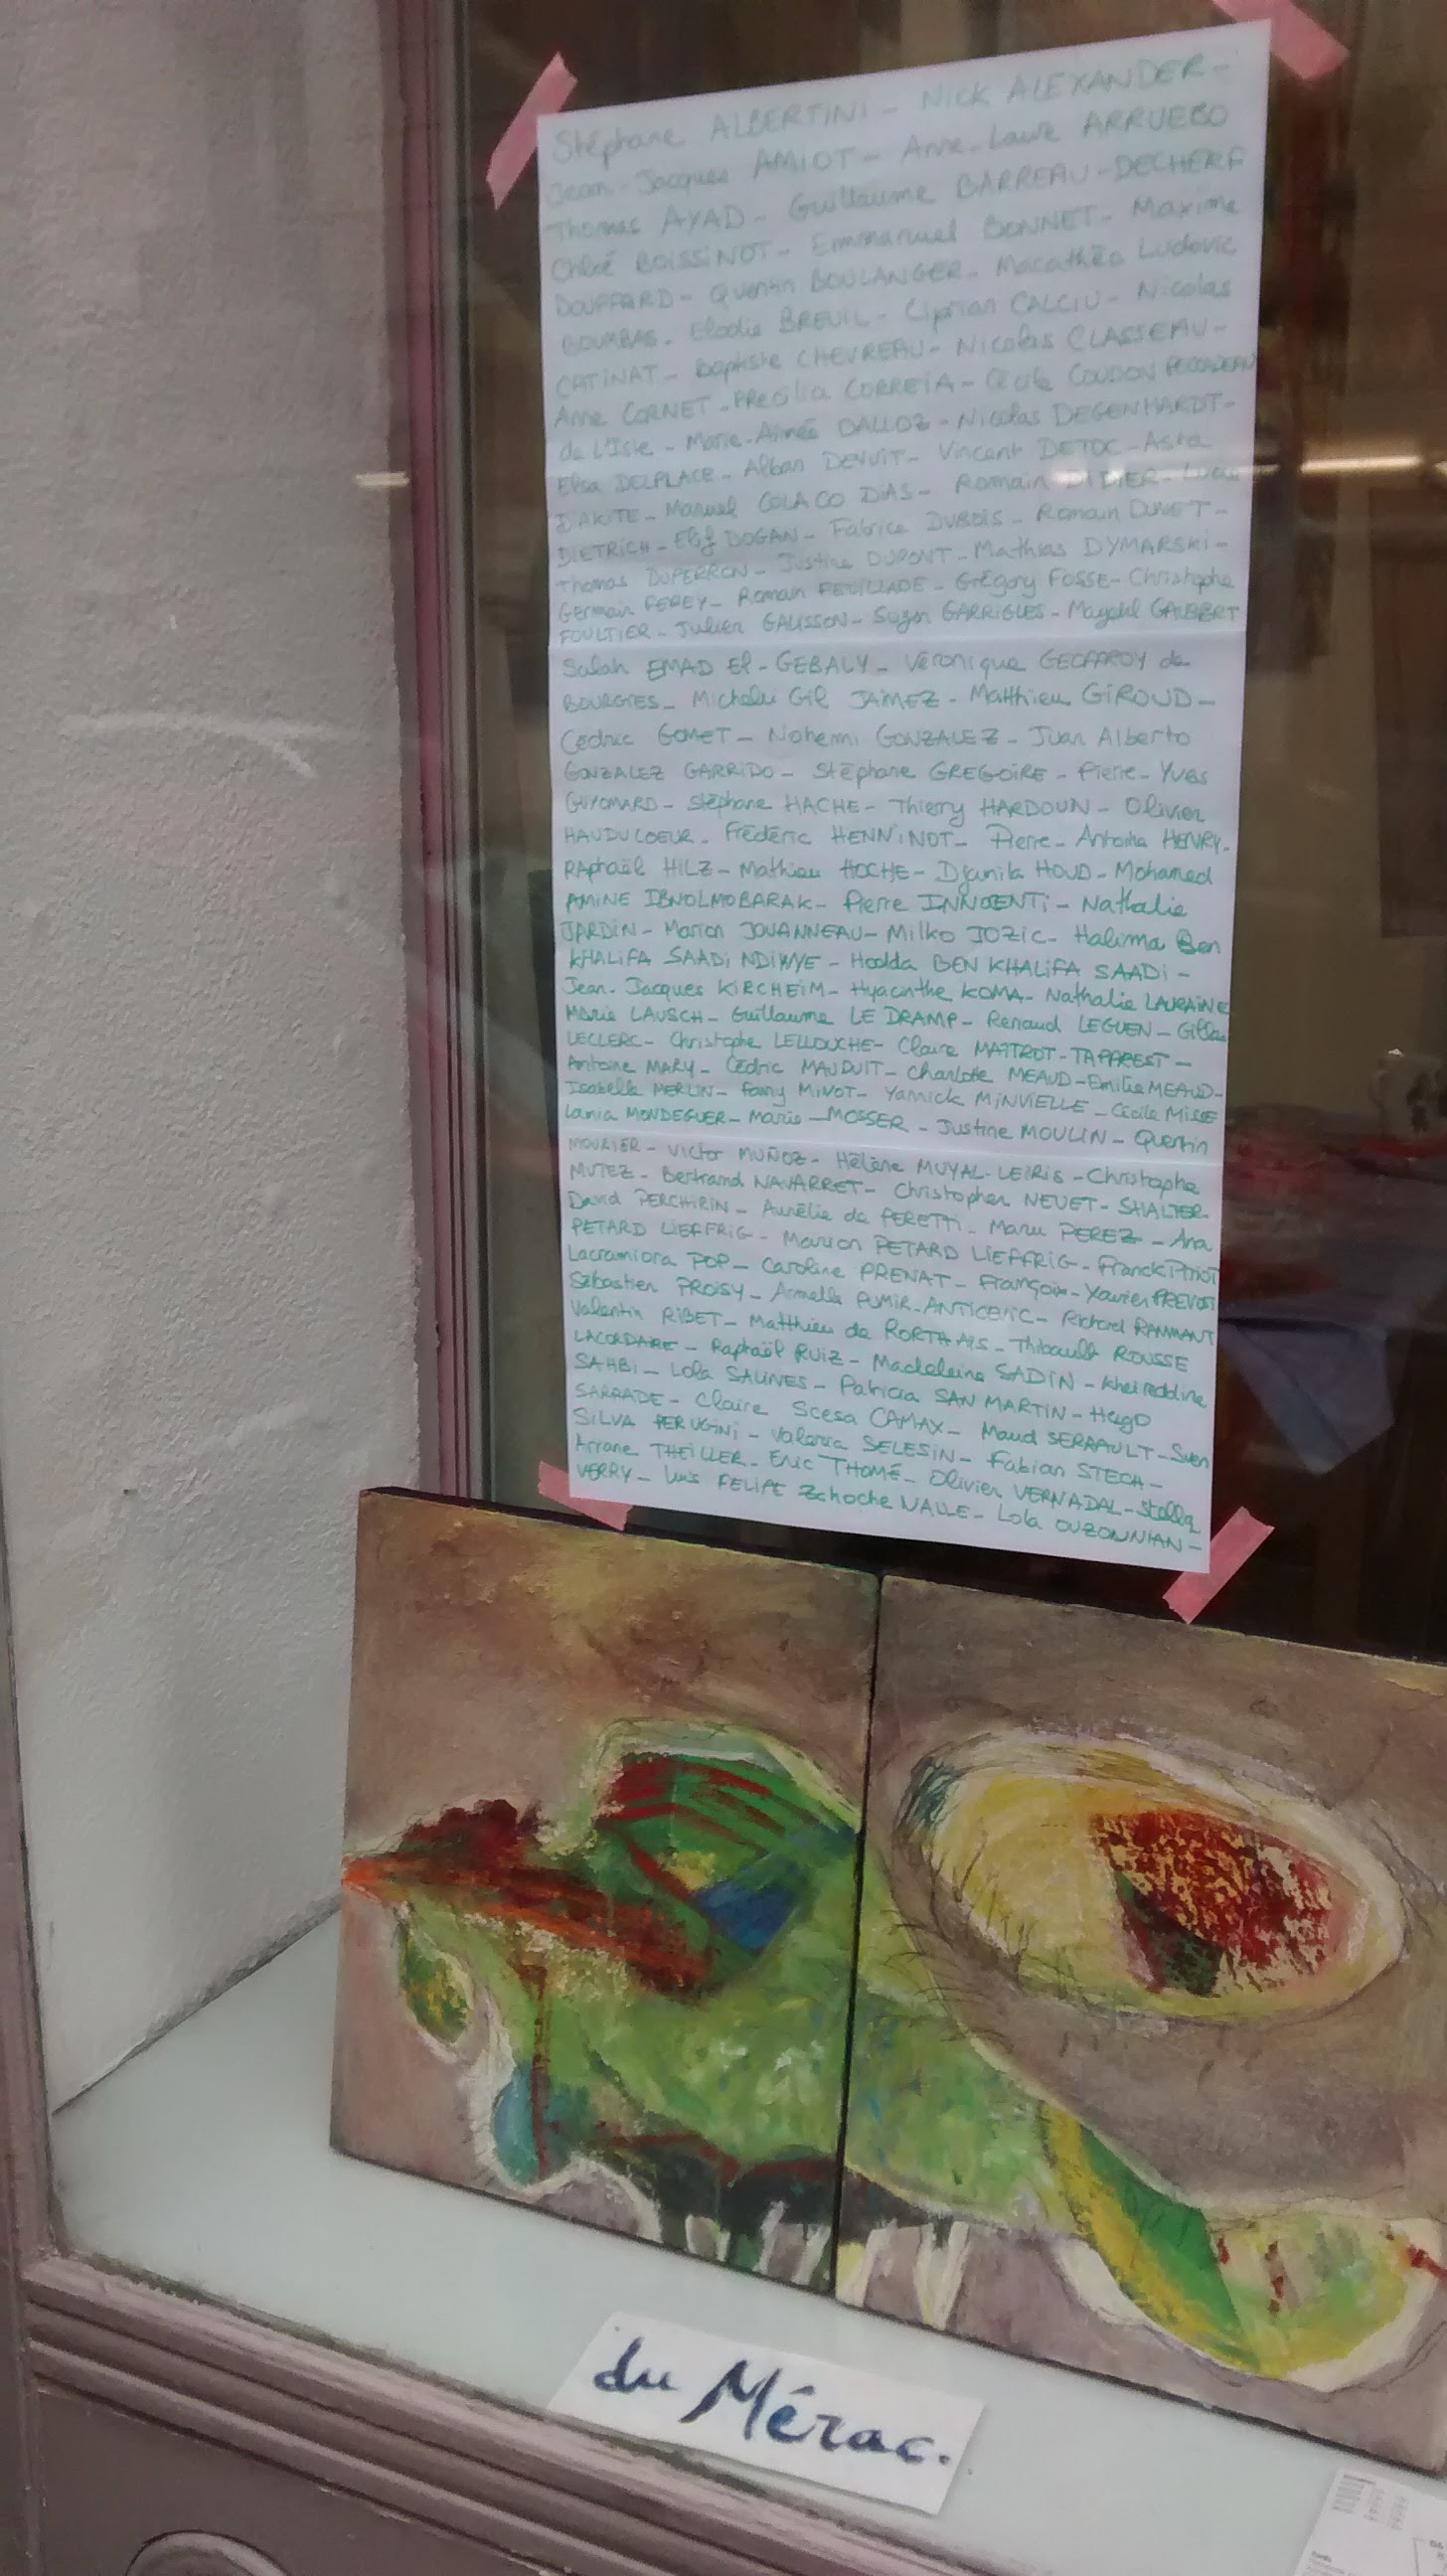 Stéphane ALBERTINI - Nick ALEXANDER -
Jean-Jacques AMIOT - Anne-Laure ARRUEBO
Thomas AYAD - Guillaume BARREAU-DECHERF
Chloé BOISSINOT - Emmanuel BONNET - Maxime
BOUFFARD - Quentin BOULANGER - Macathéo Ludovic
BOUMBAS - Elodie BREUIL - Ciprian CALCIU - Nicolas
CATINAT - Baptiste CHEVREAU - Nicolas CLASSEAU -
Anne CORNET - PRecilia CORREIA - Cécile COUDON
de L'Isle - Marie-Aimée DALLOZ - Nicolas DEGENHARDT -
Elsa DELPLACE - Alban DENUIT - Vincent DETOC - Asta
DIAKITE - Manuel COLACO DIAS - Romain DIDIER - Lucas
DIETRICH - Elif DOGAN - Fabrice DUBOIS - Romain DUNET -
Thomas DUPERRON - Justine DUPONT - Mathias DYMARSKI -
Germain FEREY - Romain FEUILLADE - Grégory FOSSE - Christophe
FOULTIER - Julien GALISSON - Suzon GARRIGUES - Mayeul GAUBERT
Salah EMAD El-GEBALY - Véronique GEOFFROY de
BOURGIES - Michelli Gil JAIMEZ - Matthieu GIROUD -
Cédric GOMET - Nohemi GONZALEZ - Juan Alberto
GONZALEZ GARRIDO - Stéphane GREGOIRE - Pierre-Yves
GUYOMARD - Stéphane HACHE - Thierry HARDOUIN - Olivier
HAUDUCOEUR - Frédéric HENNINOT - Pierre-Antoine HENRY -
RAphaël HILZ - Mathieu HOCHE - Djamila HOUD - Mohamed
AMINE IBNOLMOBARAK - Pierre INNOCENTI - Nathalie
JARDIN - Marion JOUANNEAU - Milko JOZIC - Halima Ben
KHALIFA SAADI NDIAYE - Hodda BEN KHALIFA SAADI -
Jean-Jacques KIRCHEIM - Hyacinthe KOMA - Nathalie LAURAINE
Marie LAUSCH - Guillaume LE DRAMP - Renaud LEGUEN - Gilles
LECLERC - Christophe LELLOUCHE - Claire MAITROT-TAPPREST -
Antoine MARY - Cédric MAUDUIT - Charlotte MEAUD - Emilie MEAUD -
Isabelle MERLIN - Fanny MINOT - Yannick MINVIELLE - Cécile MISSE
Lamia MONDEGUER - Marie - MOSSER - Justine MOULIN - Quentin
MOURIER - Victor MUÑOZ - Hélène MUYAL-LEIRIS - Christophe
MUTEZ - Bertrand NAVARRET - Christopher NEUET-SHALTER
David PERCHIRIN - Aurélie de PERETTI - Manu PEREZ - Ana
PETARD LIEFFRIG - Marion PETARD LIEFFRIG - Franck Pitiot
Lacramiora POP - Caroline PRENAT - François-Xavier PREVOST
Sébastien PROISY - Armelle PUMIR-ANTICEVIC - Richard RAMMANT
Valentin RIBET - Matthieu de RORTHAIS - Thibault ROUSSE
LACORDAIRE - Raphaël RUIZ - Madeleine SADIN - Kheireddine
SAHBI - Lola SALINES - Patricia SAN MARTIN - Hugo
SARRADE - Claire Scesa CAMAX - Maud SERRAULT - Sven
SILVA PERUGINI - Valeria SELESIN - Fabian STECH -
Ariane THEILLER - Eric THOMÉ - Olivier VERNADAL - Stella
VERRY - Luis FELIPE Zschoche VALLE - Lola OUZOUNIAN -
du Mérac.